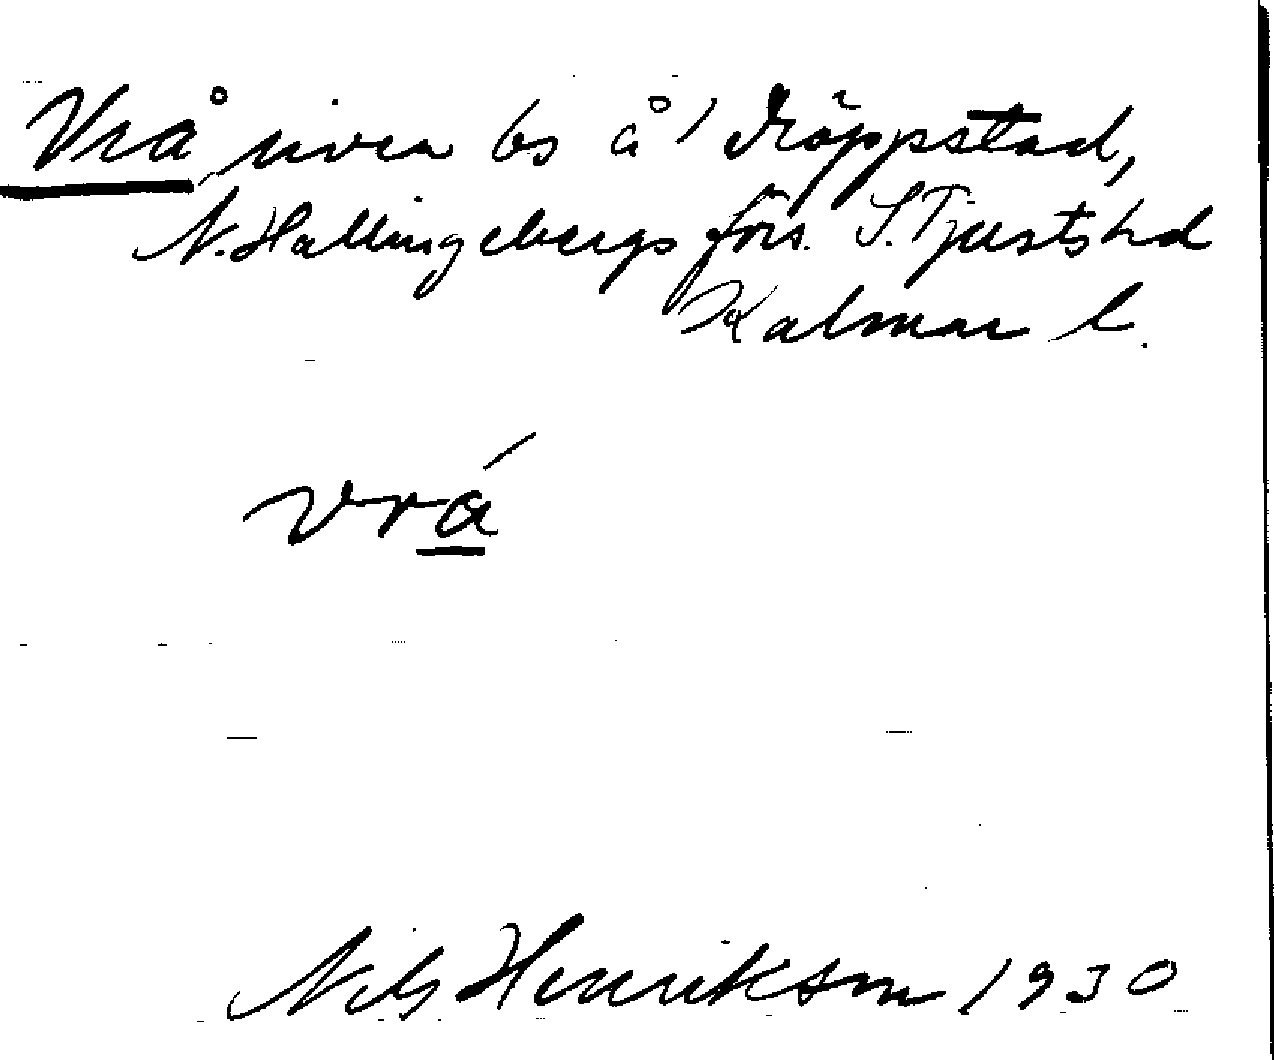 Vrå, riven bs å 1 Dröppstad,
N. Hallingebergs förs. S. Tjusts hd
Kalmar l.
vrá
Nils Henrikson 1930